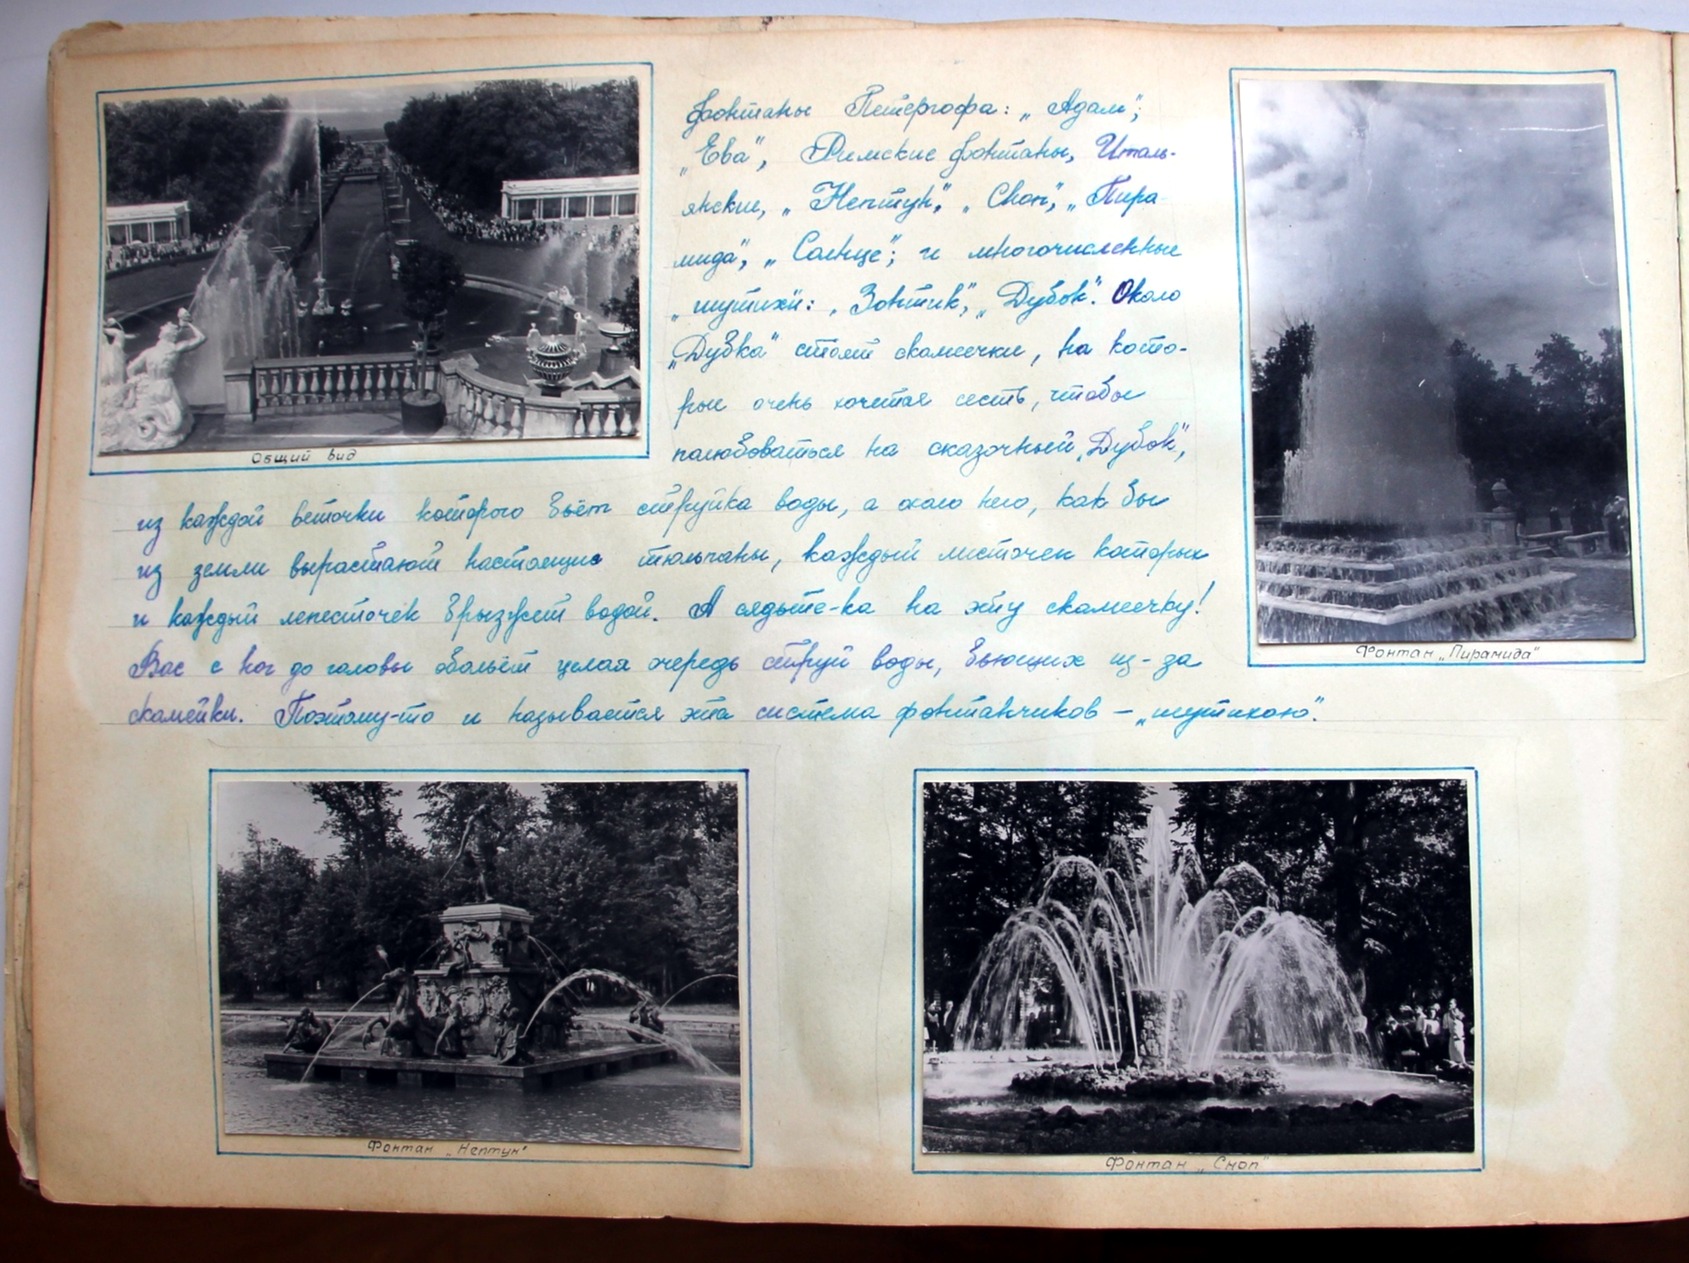 фонтаны Петергофа: „Адам",
„Ева", Римские фонтаны, Италь-
янские, „Нептун", „Сноп", „Пира-
мида", „Солнце", и многочисленные
„шутихи": „Зонтик", „Дубок". Около
„Дубка" стоят скамеечки, на кото-
рые очень хочется сесть, чтобы
полюбоваться на сказочный „Дубок",
из каждой веточки которого бьёт струйка воды, а около него, как бы
из земли вырастают настоящие тюльпаны, каждый листочек которых
и каждый лепесточек брызжет водой. А сядьте-ка на эту скамеечку!
Вас с ног до головы обольёт целая очередь струй воды, бьющих из-за
скамейки. Поэтому-то и называется эта система фонтанчиков — „шутихою".
Общий вид
Фонтан „Пирамида"
Фонтан „Нептун"
Фонтан „Сноп"